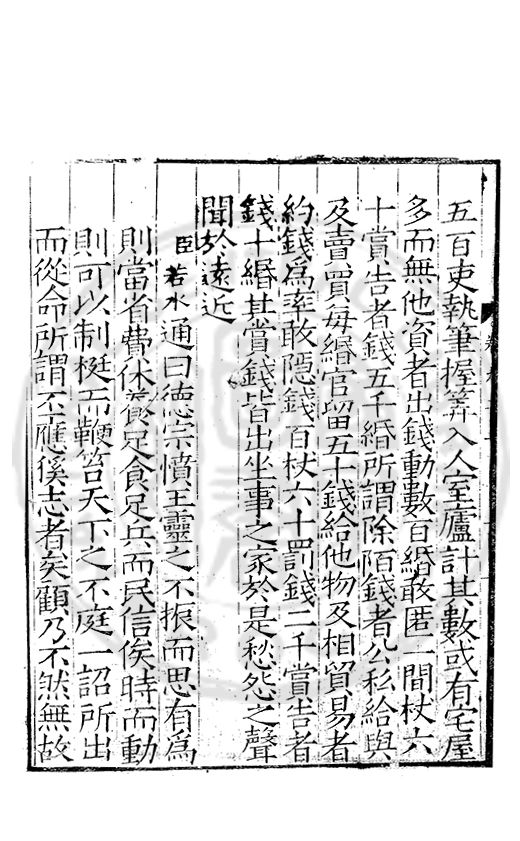 五百吏執筆握筭入人室廬計其數或有宅屋
多而無他資者出錢動數百緡敢匿一間杖六
十賞告者錢五千緡所謂除陌錢者公私給與
及賣買每緡官留五十錢給他物及相貿易者
約錢爲率敢隱錢百杖六十罰錢二千賞告者
錢十緡其賞錢皆出坐事之家於是愁怨之聲
聞於遠近
臣若水通曰德宗憤王靈之不振而思有爲
則當省費休養足食足兵而民信俟時而動
則可以制梃而鞭笞天下之不庭一詔所出
而從命所謂丕應徯志者矣顧乃不然無故